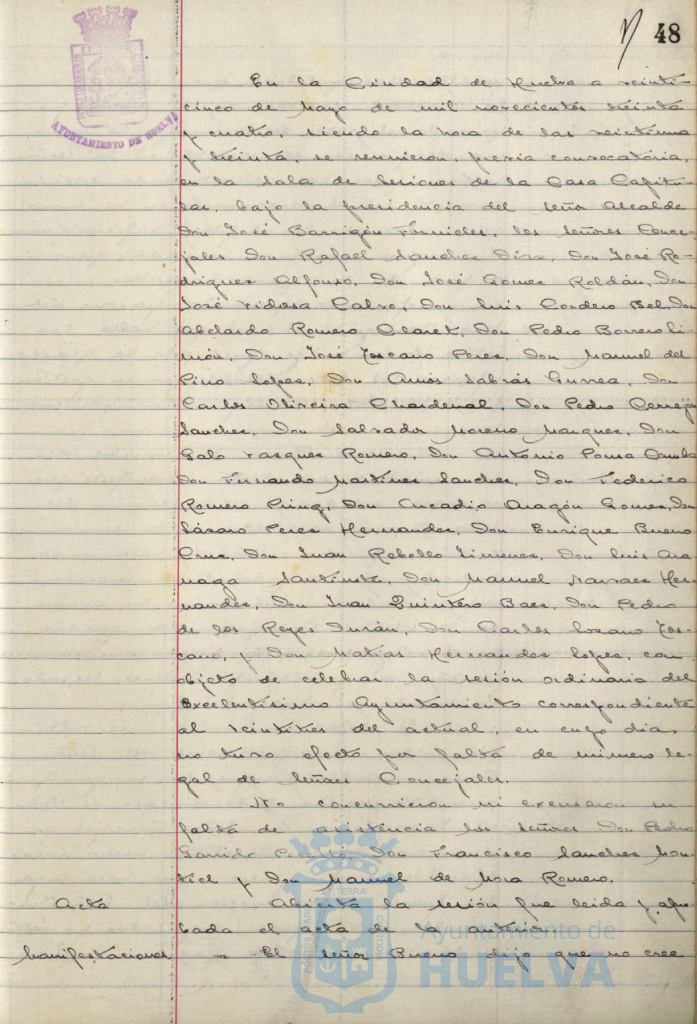 48
AYUNTAMIENTO DE HUELVA
En la Ciudad de Huelva a veinti-
cinco de Mayo de mil novecientos treinta
y cuatro, siendo la hora de las veintiuna
y treinta, se reunieron, previa convocatoria,
en la Sala de Sesiones de la Casa Capitu-
lar, bajo la presidencia del Señor Alcalde
Don José Barrigón Fornieles, los señores Conce-
jales Don Rafael Sanchez Díaz, Don José Ro-
driguez Alfonso, Don José Gomez Roldán, Don
José Vidosa Calvo, Don Luis Cordero Bel, Don
Abelardo Romero Claret, Don Pedro Borrero Li-
món, Don José Toscano Perez, Don Manuel del
Pino Lopez, Don Amós Sabrás Gurrea, Don
Carlos Oliveira Chardenal, Don Pedro Cerrejón
Sanchez, Don Salvador Moreno Marquez, Don
Galo Vazquez Romero, Don Antonio Pousa Camba
Don Fernando Martinez Sanchez, Don Federico
Romero Don Arcadio Aragón Gomez, Don
Lázaro Perez Hernandez, Don Enrique Bueno
Cruz, Don Juan Rebollo Jimenez, Don Luis
Don Manuel Narvaez Her-
nandez, Don Juan Quintero Baez, Don Pedro
de los Reyes Durán, Don Carlos Lozano Tos-
cano, y Don Matías Hernandez Lopez, con
objeto de celebrar la sesión ordinaria del
Excelentísimo Ayuntamiento correspondiente
al veintitres del actual, en cuyo dia,
no tuvo efecto por falta de número le-
gal de Señores Concejales.
No concurrieron ni excusaron su
falta de asistencia los Señores Don Pedro
Garrido Don Francisco Sanchez Mon-
tiel y Don Manuel de Mora Romero.
Acta Abierta la sesión fue leida y apro-
bada el acta de la anterior.
Manifestaciones El Señor Bueno dijo que no cree
Ayuntamiento de
HUELVA